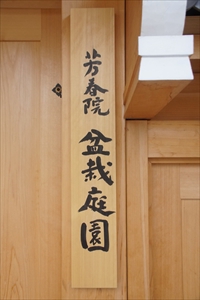 芳春院
盆栽庭園